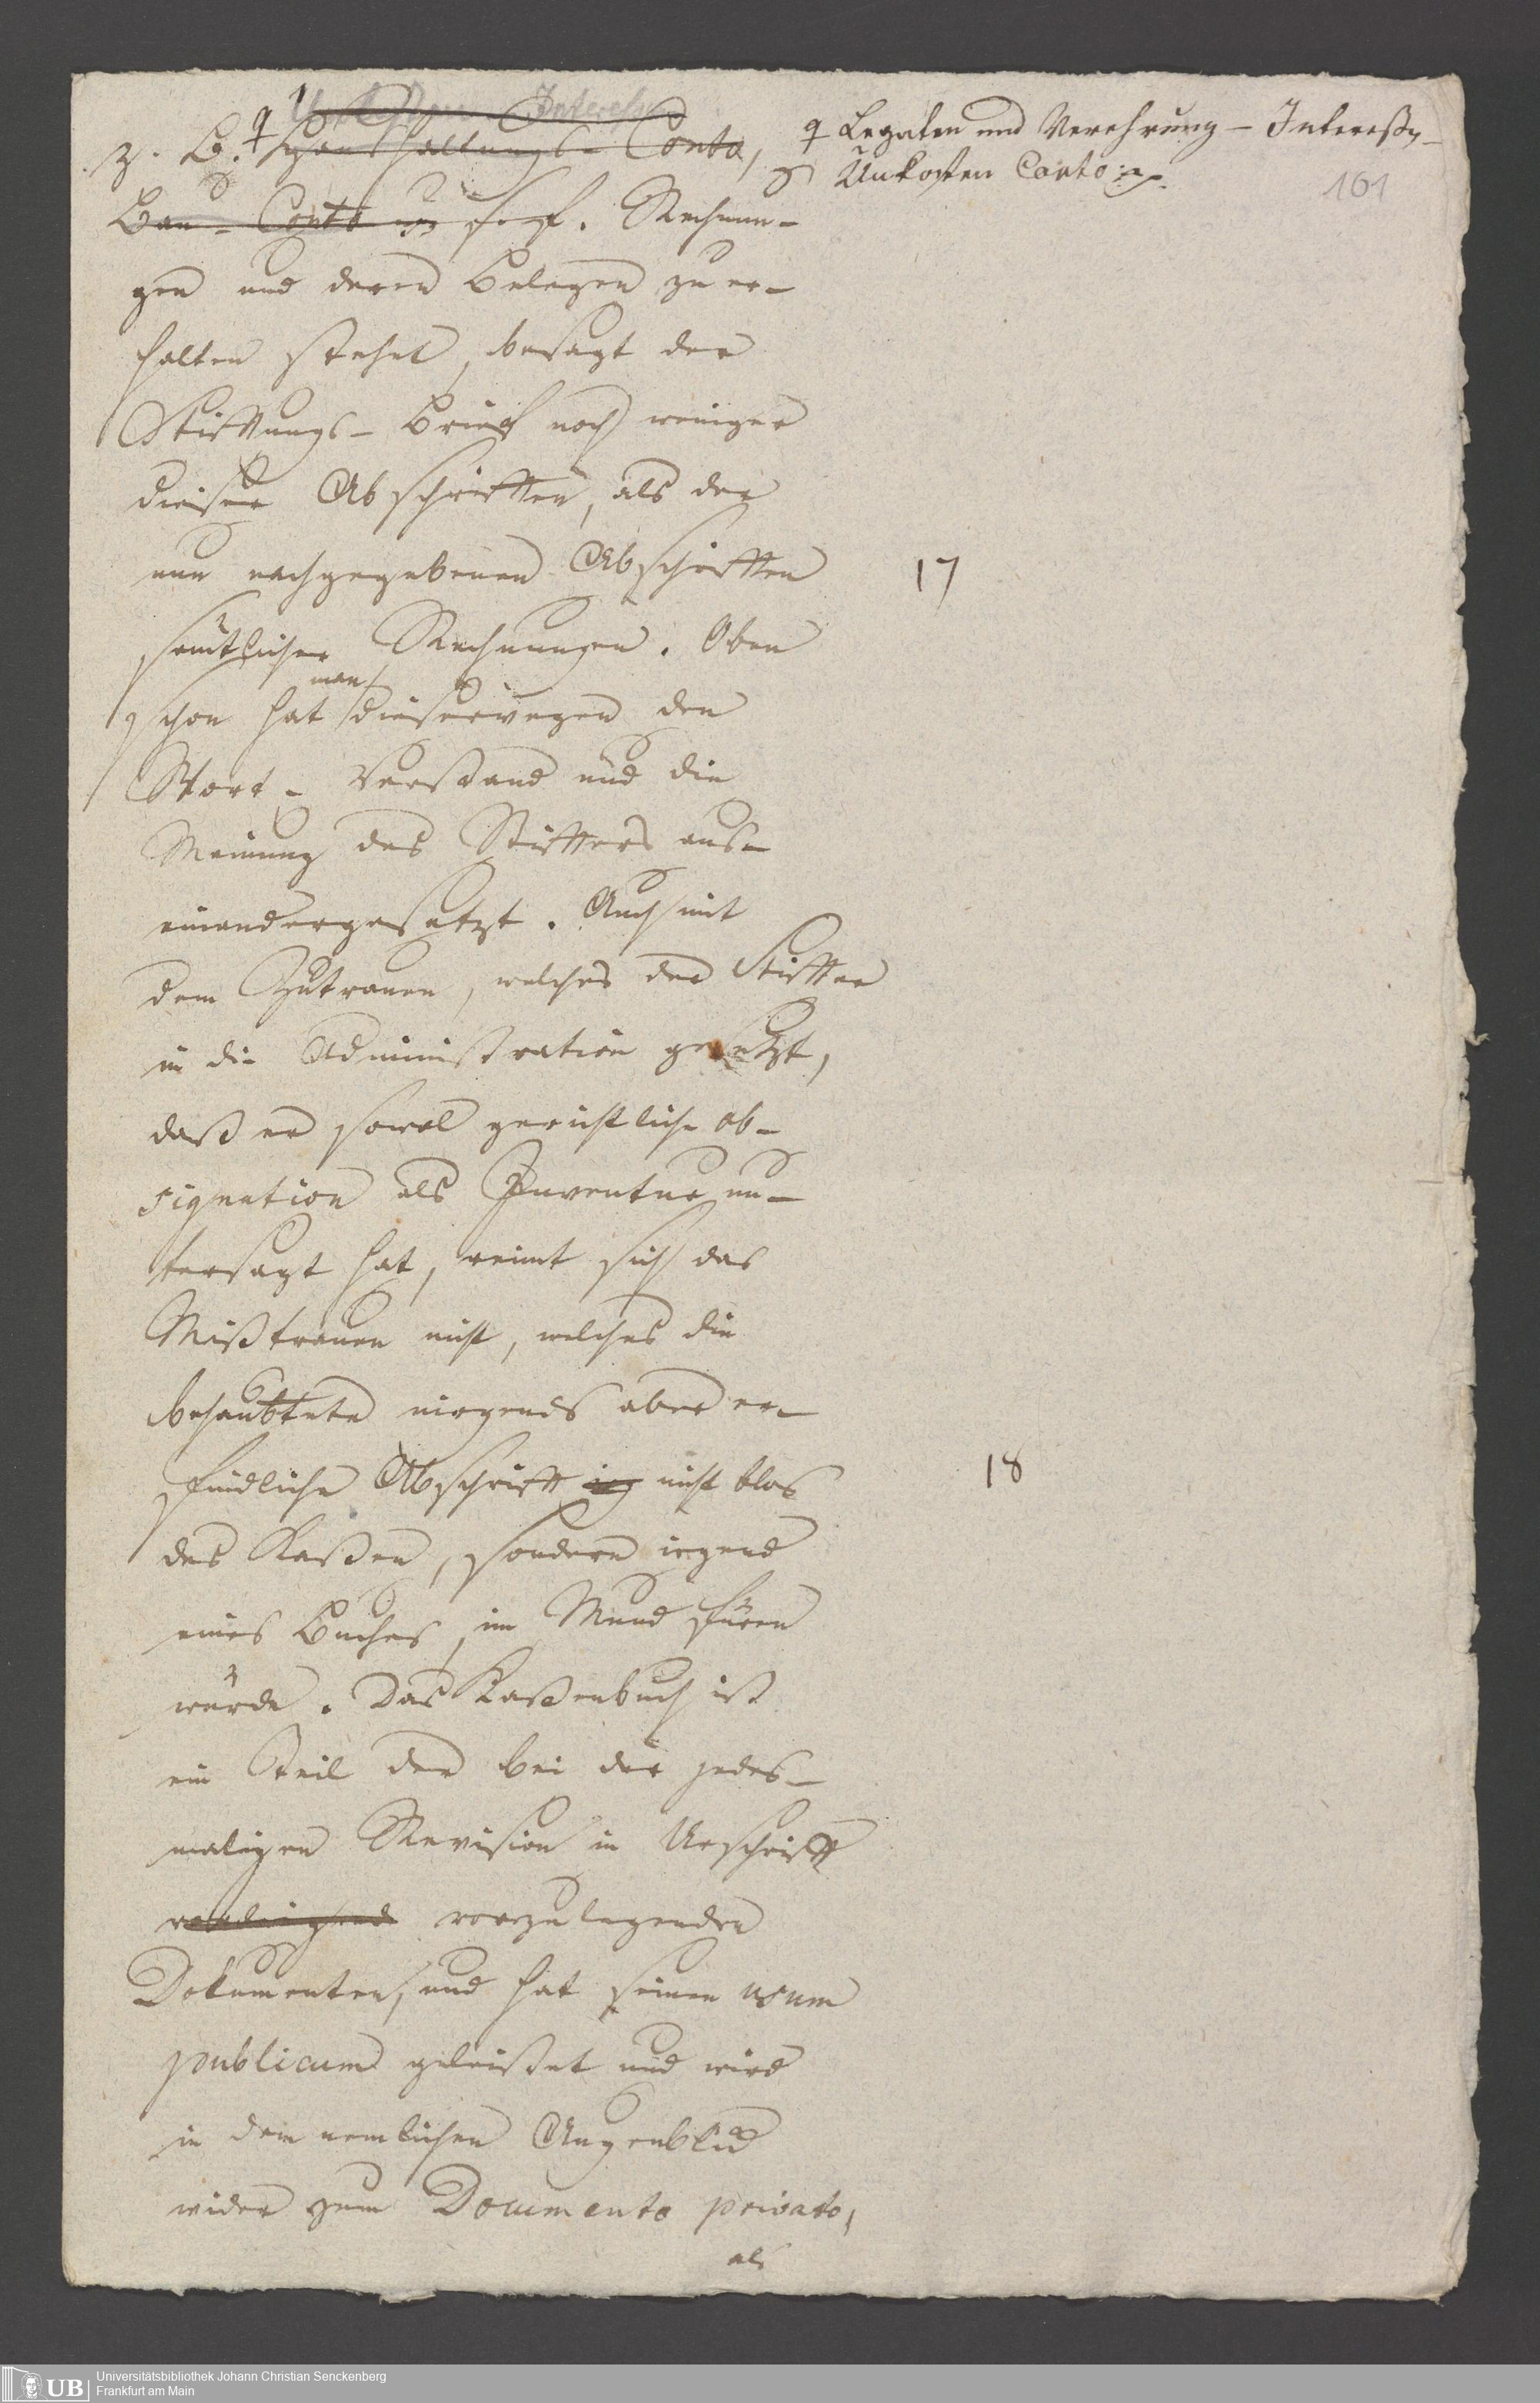 z. B. Haushaltungs-Conto,
Bau-Conto u. s. f. Rechnun-
gen und deren Belegen zu er-
halten stehet, besagt der
Stiftungs-Brief noch weniger
dieser Abschriften, als der
nun nachgegebenen Abschriften
sämtlicher Rechnungen. Oben
schon hat man dieserwegen den
Wort-Verstand und die
Meinung des Stifters aus-
einandergesetzt. Auch mit
dem Zutrauen, welches der Stifter
in die Administration gesetzt,
daß er sowol gerichtliche ob-
signation als Inventur un-
tersagt hat, reimt sich das
Mißtrauen nicht, welches die
behaubtete nirgends aber er-
findliche Abschrift nicht blos
des Kaßen, sondern irgend
eines Buches, im Mund füren
würde. Das Kaßenbuch ist
ein Teil der bei der jedes-
maligen Revision in Urschrift
vorzulegenden
Dokumenten, und hat seinen usum
publicum geleistet und wird
in dem nemlichen Augenblick
wider zum Documento privato,
als
Legaten und Verehrung- Intereße-
Unkosten Conto
161
17
18
UB
Universitätsbibliothek Johann Christian Senckenberg
Frankfurt am Main